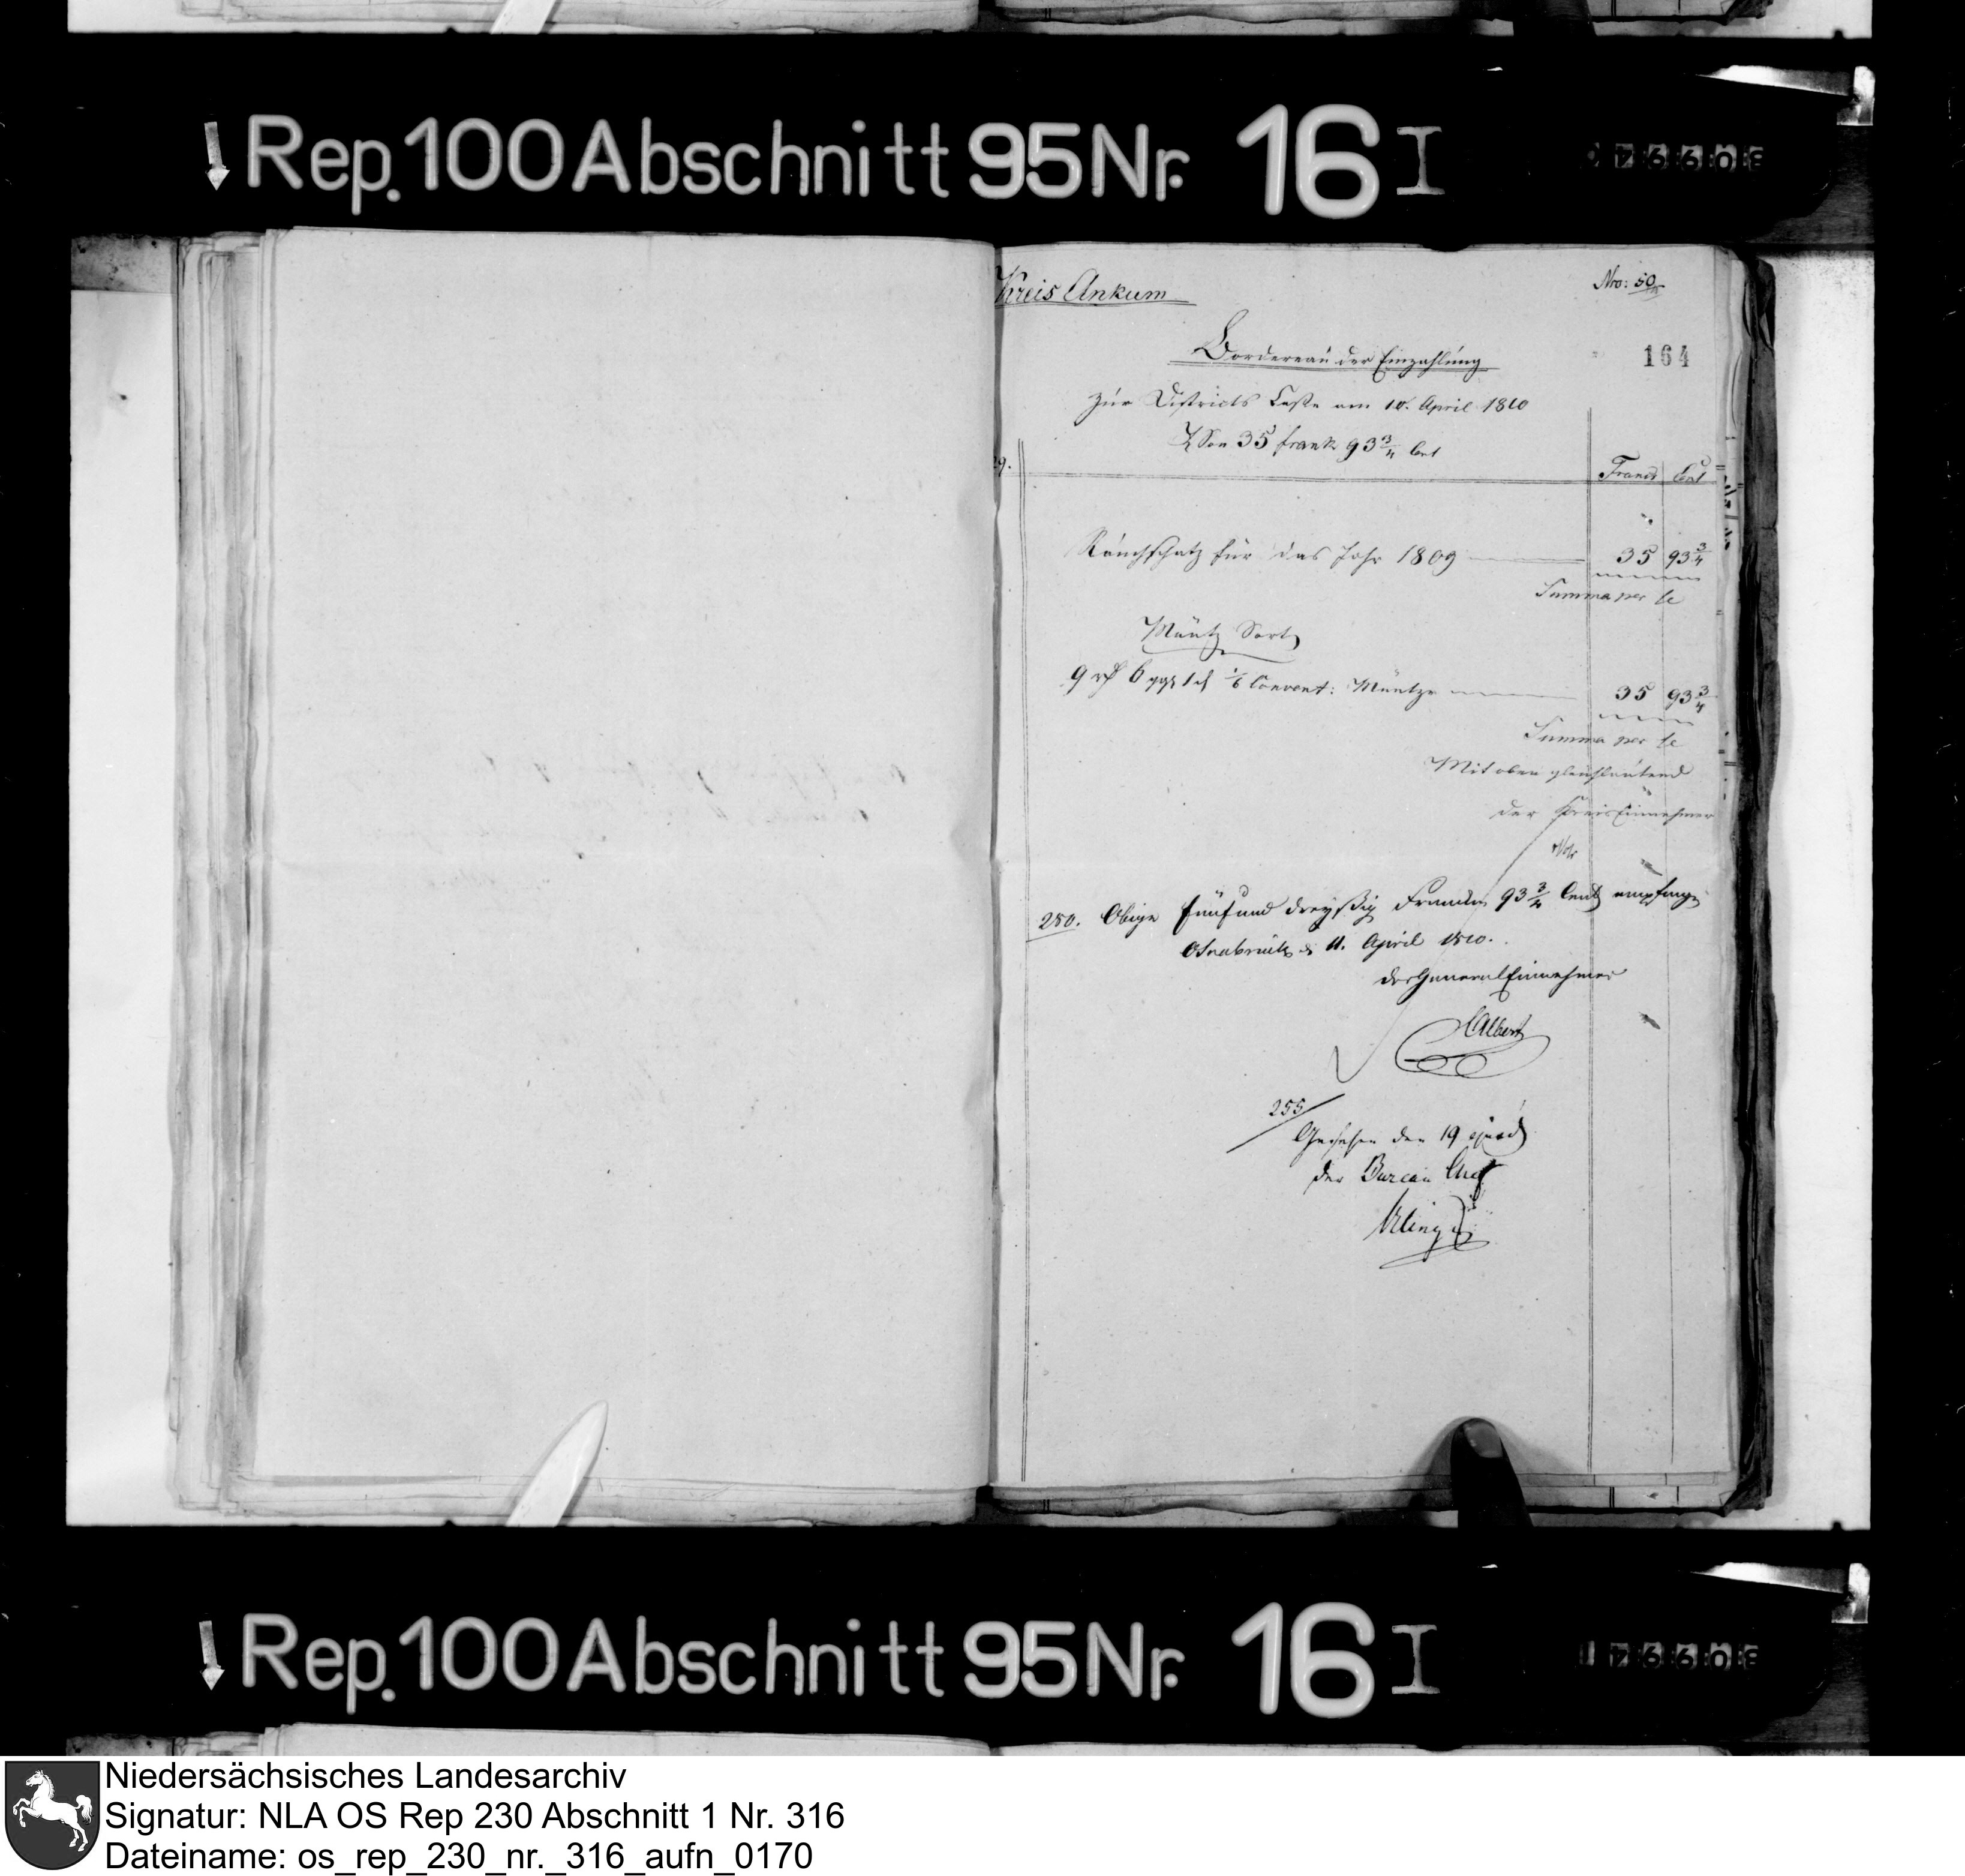 Rep. 100 Abschnitt 95 Nr. 16 I
Kreis Ankum
Nro: 50
164
Bordereau der Einzahlung
zur Districts Casse am 10. April 1810
Von 35 frank 93 3/4 Cent
Francs Cent
Rauchschatz für das Jahr 1809 35 93 3/4
Summa per se
Müntz Sorte
9 rt 6 ggr 1 d 1/6 Convent: Müntze 35 93 3/4
Summa per se
Mit oben gleichlautend
der Kreis Einnehmer
250. Obige fünf und dreyßig Franken 93 3/4 Cent empfangen
Osnabrück d 11. April 1810.
der General Einnehmer
Albert
255
Gesehen den 19 ejusd
der Bureau Chef
Rep. 100 Abschnitt 95 Nr. 16 I
Niedersächsisches Landesarchiv
Signatur: NLA OS Rep 230 Abschnitt 1 Nr. 316
Dateiname: os_rep_230_nr._316_aufn_0170